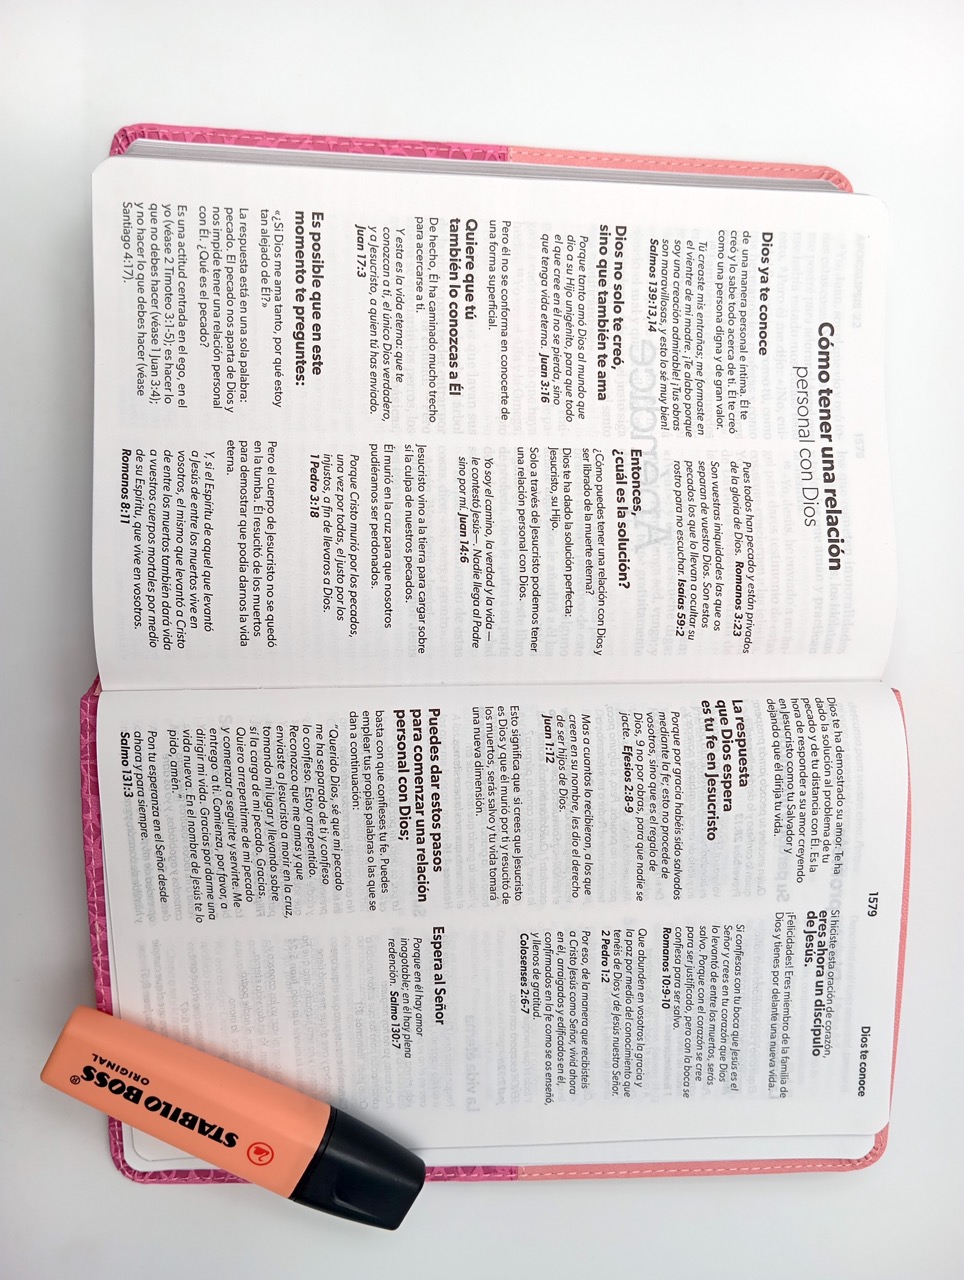 Cómo tener una relación
personal con Dios
Dios ya te conoce
de una manera personal e íntima. Él te
creó y lo sabe todo acerca de ti. Él te creó
como una persona digna y de gran valor.
Tú creaste mis entrañas; me formaste en
el vientre de mi madre. ¡Te alabo porque
soy una creación admirable! ¡Tus obras
son maravillosas, y esto lo sé muy bien!
Salmos 139:13,14
Dios no solo te creó,
sino que también te ama
Porque tanto amó Dios al mundo que
dio a su Hijo unigénito, para que todo
el que cree en él no se pierda, sino
que tenga vida eterna. Juan 3:16
Pero él no se conforma en conocerte de
una forma superficial.
Quiere que tú
también lo conozcas a Él
De hecho, Él ha caminado mucho trecho
para acercarse a ti.
Y esta es la vida eterna: que te
conozcan a ti, el único Dios verdadero,
y a Jesucristo, a quien tú has enviado.
Juan 17:3
Es posible que en este
momento te preguntes:
«¿Si Dios me ama tanto, por qué estoy
tan alejado de Él?»
La respuesta está en una sola palabra:
pecado. El pecado nos aparta de Dios y
nos impide tener una relación personal
con Él. ¿Qué es el pecado?
Es una actitud centrada en el ego, en el
yo (véase 2 Timoteo 3:1-5); es hacer lo
que no debes hacer (véase 1 Juan 3:4);
y no hacer lo que debes hacer (véase
Santiago 4:17).
Pues todos han pecado y están privados
de la gloria de Dios. Romanos 3:23
Son vuestras iniquidades las que os
separan de vuestro Dios. Son estos
pecados los que lo llevan a ocultar su
rostro para no escuchar. Isaías 59:2
Entonces,
¿cuál es la solución?
¿Cómo puedes tener una relación con Dios y
ser librado de la muerte eterna?
Dios te ha dado la solución perfecta:
Jesucristo, su Hijo.
Solo a través de Jesucristo podemos tener
una relación personal con Dios.
Yo soy el camino, la verdad y la vida —
le contestó Jesús—. Nadie llega al Padre
sino por mí. Juan 14:6
Jesucristo vino a la tierra para cargar sobre
sí la culpa de nuestros pecados.
Él murió en la cruz para que nosotros
pudiéramos ser perdonados.
Porque Cristo murió por los pecados,
una vez por todas, el justo por los
injustos, a fin de llevaros a Dios.
1 Pedro 3:18
Pero el cuerpo de Jesucristo no se quedó
en la tumba. Él resucitó de los muertos
para demostrar que podía darnos la vida
eterna.
Y, si el Espíritu de aquel que levantó
a Jesús de entre los muertos vive en
vosotros, el mismo que levantó a Cristo
de entre los muertos también dará vida
a vuestros cuerpos mortales por medio
de su Espíritu, que vive en vosotros.
Romanos 8:11
1579
Dios te conoce
Dios te ha demostrado su amor. Te ha
dado la solución al problema de tu
pecado y de tu distancia con Él. Es la
hora de responder a su amor creyendo
en Jesucristo como tu Salvador y
dejando que él dirija tu vida.
La respuesta
que Dios espera
es tu fe en Jesucristo
Porque por gracia habéis sido salvados
mediante la fe; esto no procede de
vosotros, sino que es el regalo de
Dios, 9 no por obras, para que nadie se
jacte. Efesios 2:8-9
Mas a cuantos lo recibieron, a los que
creen en su nombre, les dio el derecho
de ser hijos de Dios.
Juan 1:12
Esto significa que si crees que Jesucristo
es Dios y que él murió por ti y resucitó de
los muertos, serás salvo y tu vida tomará
una nueva dimensión.
Puedes dar estos pasos
para comenzar una relación
personal con Dios;
basta con que confieses tu fe. Puedes
emplear tus propias palabras o las que se
dan a continuación:
“Querido Dios, sé que mi pecado
me ha separado de ti y confieso
lo confieso. Estoy arrepentido.
Reconozco que me amas y que
enviaste a Jesucristo a morir en la cruz,
tomando mi lugar y llevando sobre
sí la carga de mi pecado. Gracias.
Quiero arrepentirme de mi pecado
y comenzar a seguirte y servirte. Me
entrego a ti. Comienza, por favor, a
dirigir mi vida. Gracias por darme una
vida nueva. En el nombre de Jesús te lo
pido, amén.”
Pon tu esperanza en el Señor desde
ahora y para siempre.
Salmo 131:3
Si hiciste esta oración de corazón,
eres ahora un discípulo
de Jesús.
¡Felicidades! Eres miembro de la familia de
Dios y tienes por delante una nueva vida.
Si confiesas con tu boca que Jesús es el
Señor y crees en tu corazón que Dios
lo levantó de entre los muertos, serás
salvo. Porque con el corazón se cree
para ser justificado, pero con la boca se
confiesa para ser salvo.
Romanos 10:9-10
Que abunden en vosotros la gracia y
la paz por medio del conocimiento que
tenéis de Dios y de Jesús nuestro Señor.
2 Pedro 1:2
Por eso, de la manera que recibisteis
a Cristo Jesús como Señor, vivid ahora
en él, arraigados y edificados en él,
confirmados en la fe como se os enseñó,
y llenos de gratitud.
Colosenses 2:6-7
Espera al Señor
Porque en él hay amor
inagotable; en él hay plena
redención. Salmo 130:7
STABILO BOSS®
ORIGINAL